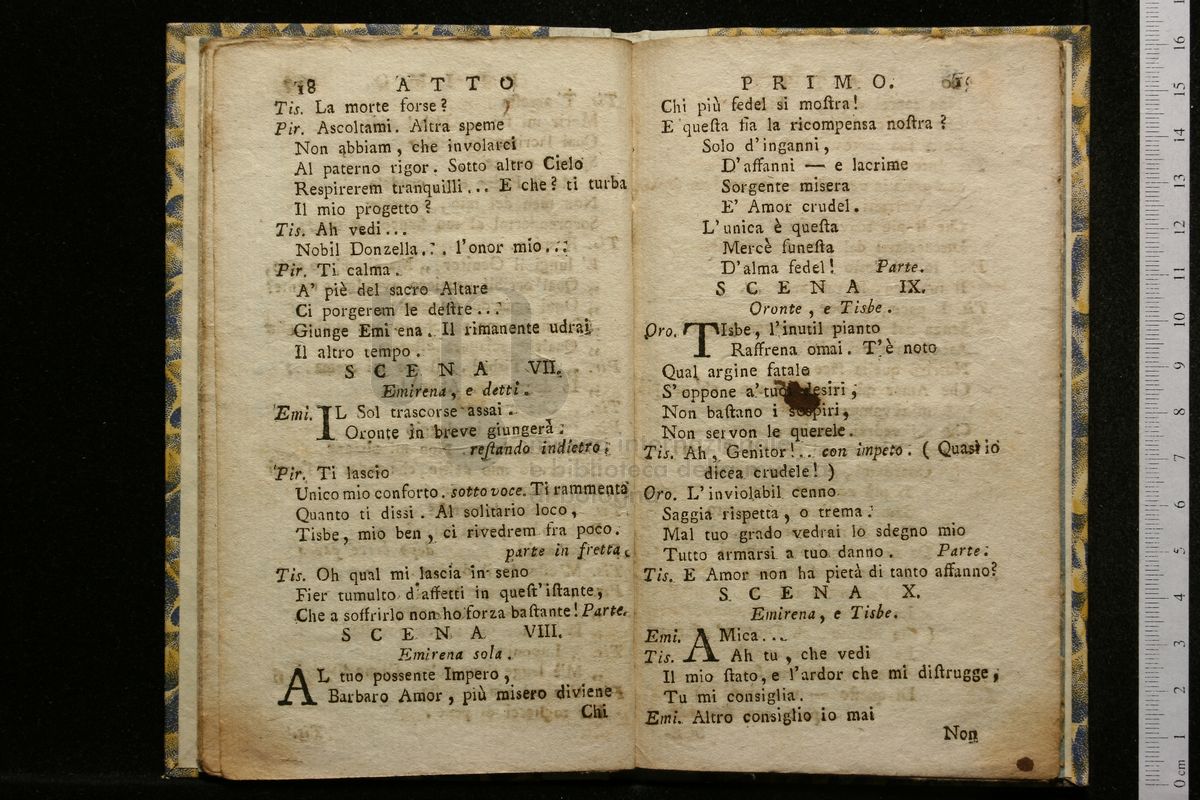 18 ATTO
Tis. La morte forse?
Pir. Ascoltami. Altra speme
Non abbiam, che involarci
Al paterno rigor. Sotto altro Cielo
Respirerem tranquilli... E che? ti turba
Il mio progetto?
Tis. Ah vedi...
Nobil Donzella... l'onor mio...
Pir. Ti calma.
A' piè del sacro Altare
Ci porgerem le destre...
Giunge Emi ena. Il rimanente udrai
Il altro tempo.
SCENA VII.
Emirena, e detti.
Emi. IL Sol trascorse assai.
Oronte in breve giungerà:
restando indietro.
Pir. Ti lascio
Unico mio conforto. sotto voce. Ti rammento
Quanto ti dissi. Al solitario loco,
Tisbe, mio ben, ci rivedrem fra poco.
parte in fretta.
Tis. Oh qual mi lascia in seno
Fier tumulto d'affetti in quest'istante,
Che a soffrirlo non ho forza bastante! Parte.
SCENA VIII.
Emirena sola.
AL tuo possente Impero,
Barbaro Amor, più misero diviene
Chi
PRIMO.
Chi più fedel si mostra!
E questa fia la ricompensa nostra?
Solo d'inganni,
D'affanni — e lacrime
Sorgente misera
E' Amor crudel.
L'unica è questa
Mercè funesta
D'alma fedel! Parte.
SCENA IX.
Oronte, e Tisbe.
Oro. TIsbe, l'inutil pianto
Raffrena omai. T'è noto
Qual argine fatale
S'oppone a' tuoi desiri,
Non bastano i sospiri,
Non servon le querele.
Tis. Ah, Genitor!.. con impeto. (Quasi io
dicea crudele!)
Oro. L'inviolabil cenno
Saggia rispetta, o trema:
Mal tuo grado vedrai lo sdegno mio
Tutto armarsi a tuo danno. Parte.
Tis. E Amor non ha pietà di tanto affanno?
SCENA X.
Emirena, e Tisbe.
Emi. AMica...
Tis. Ah tu, che vedi
Il mio stato, e l'ardor che mi distrugge,
Tu mi consiglia.
Emi. Altro consiglio io mai
Non